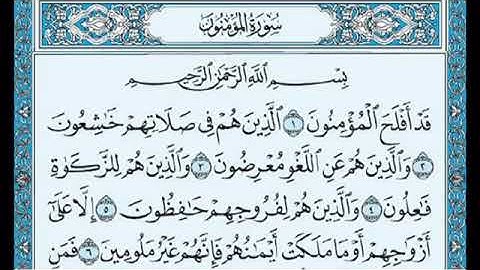 سُورَةُ الْمُؤْمِنُونَ
بِسْمِ اللَّهِ الرَّحْمَٰنِ الرَّحِيمِ
قَدْ أَفْلَحَ الْمُؤْمِنُونَ ١ الَّذِينَ هُمْ فِي صَلَاتِهِمْ خَاشِعُونَ
٢ وَالَّذِينَ هُمْ عَنِ اللَّغْوِ مُعْرِضُونَ ٣ وَالَّذِينَ هُمْ لِلزَّكَوٰةِ
فَاعِلُونَ ٤ وَالَّذِينَ هُمْ لِفُرُوجِهِمْ حَافِظُونَ ٥ إِلَّا عَلَىٰ
أَزْوَاجِهِمْ أَوْ مَا مَلَكَتْ أَيْمَانُهُمْ فَإِنَّهُمْ غَيْرُ مَلُومِينَ ٦ فَمَنِ